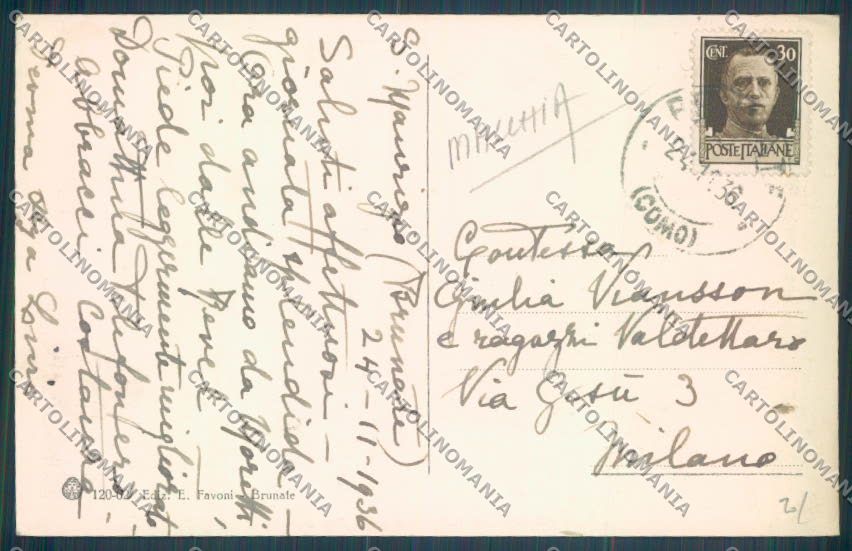 S. Maurizio (Brunate)
24-11-1936
Saluti affettuosi -
giornata splendida -
Ora andiamo da Moretti
poi dalle
Piede leggermente migliorato
Domattina telefonerò
Abbracci Costanza
MACCHIA
CENT. 30
POSTE ITALIANE
(COMO)
Contessa
Giulia Viansson
e ragazzi Valdettaro
Via Gesù 3
Milano
Ediz. E. Favoni - Brunate